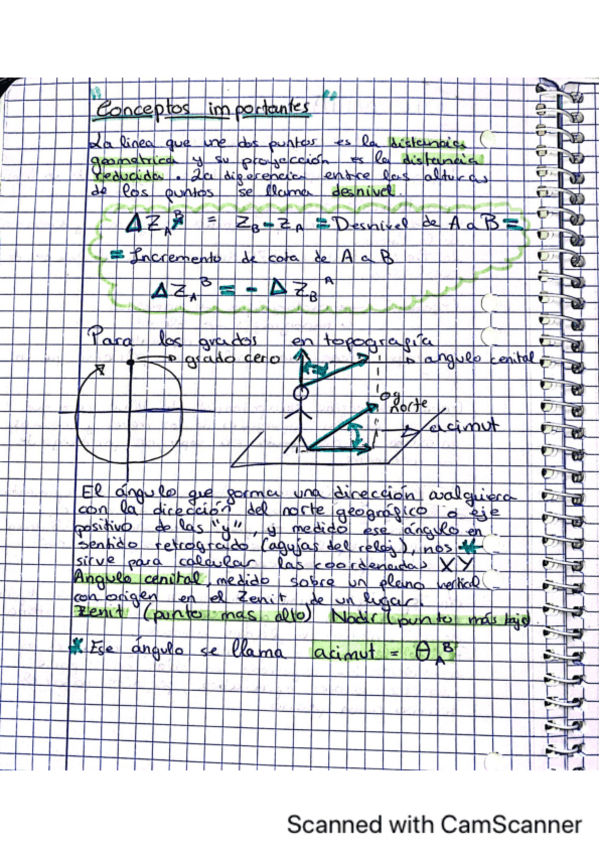 "Conceptos importantes"
La linea que une dos puntos es la distancia
geometrica y su proyección es la distancia
reducida. La diferencia entre las alturas
de los puntos se llama desnivel.
ΔZ_A^B = Z_B - Z_A = Desnivel de A a B =
= Incremento de cota de A a B
ΔZ_A^B = - ΔZ_B^A
Para los grados en topografía
grado cero
angulo cenital
norte
acimut
El ángulo que forma una dirección cualquiera
con la dirección del norte geográfico o eje
positivo de las "y", y medido ese ángulo en
sentido retrogrado (agujas del reloj), nos *
sirve para calcular las coordenadas XY
Angulo cenital, medido sobre un plano vertical
con origen en el Zenit de un lugar.
Zenit (punto mas alto) Nadir (punto más bajo)
* Ese ángulo se llama acimut = θ_A^B
Scanned with CamScanner